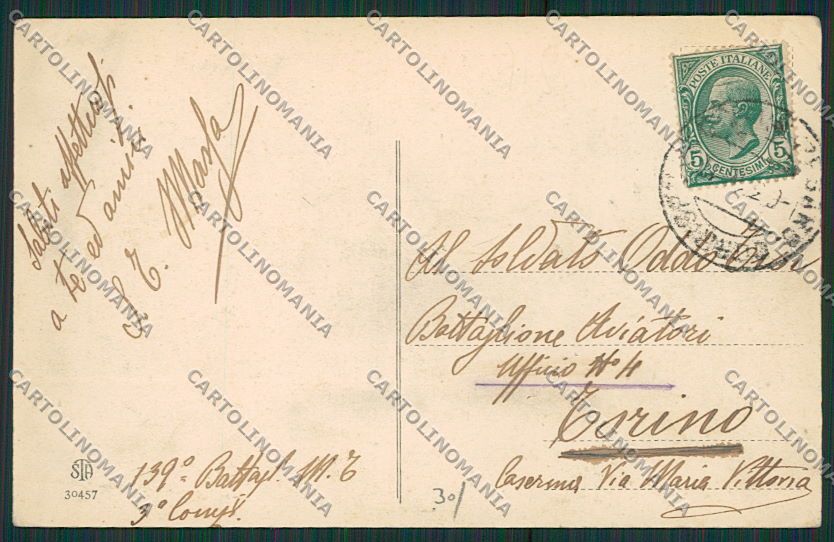 Saluti affettuosi
a te ed amici
S. T. Marfa
139° Battagl. M. T
3° Comp.
STA
30457
POSTE ITALIANE
5 5
CENTESIMI
Al Soldato Oddo
Battaglione Aviatori
Ufficio N° 4
Torino
Caserma Via Maria Vittoria
30/
CARTOLINOMANIA